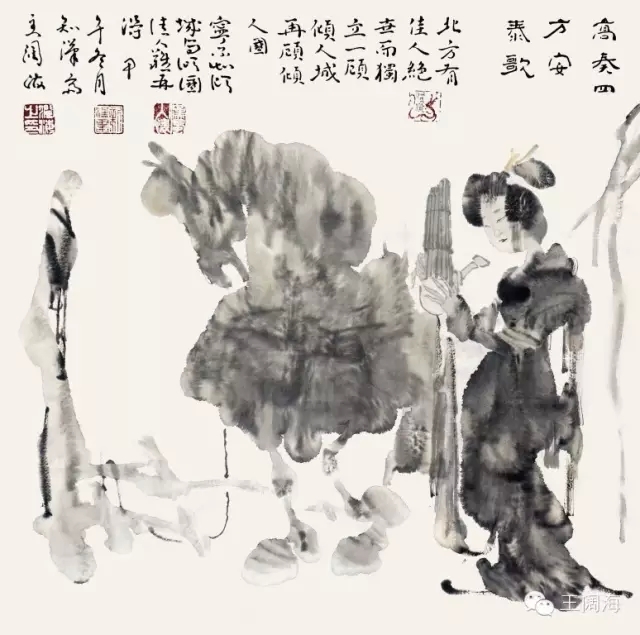 高奏四
方安
泰歌
北方有
佳人絕
世而獨
立一顧
傾人城
再顧傾
人國
寧不知傾
城与傾國
佳人難再
得 甲
午冬月
知漢齋
主闊海
王阔海